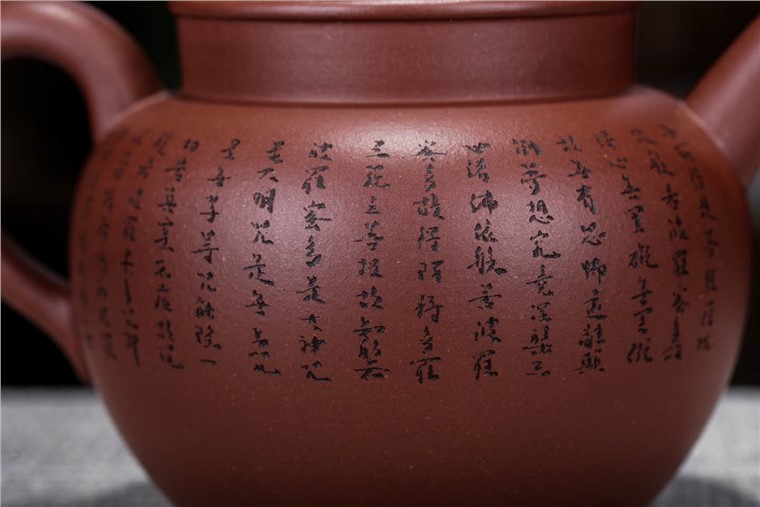 無所得故菩提薩埵
依般若波羅蜜多故
心無罣礙無罣礙
故無有恐怖遠離顛
倒夢想究竟涅槃三
世諸佛依般若波羅
蜜多故得阿耨多羅
三藐三菩提故知般若
波羅蜜多是大神咒
是大明咒是無上咒
是無等等咒能除一
切苦真實不虛故說
般若波羅蜜多咒